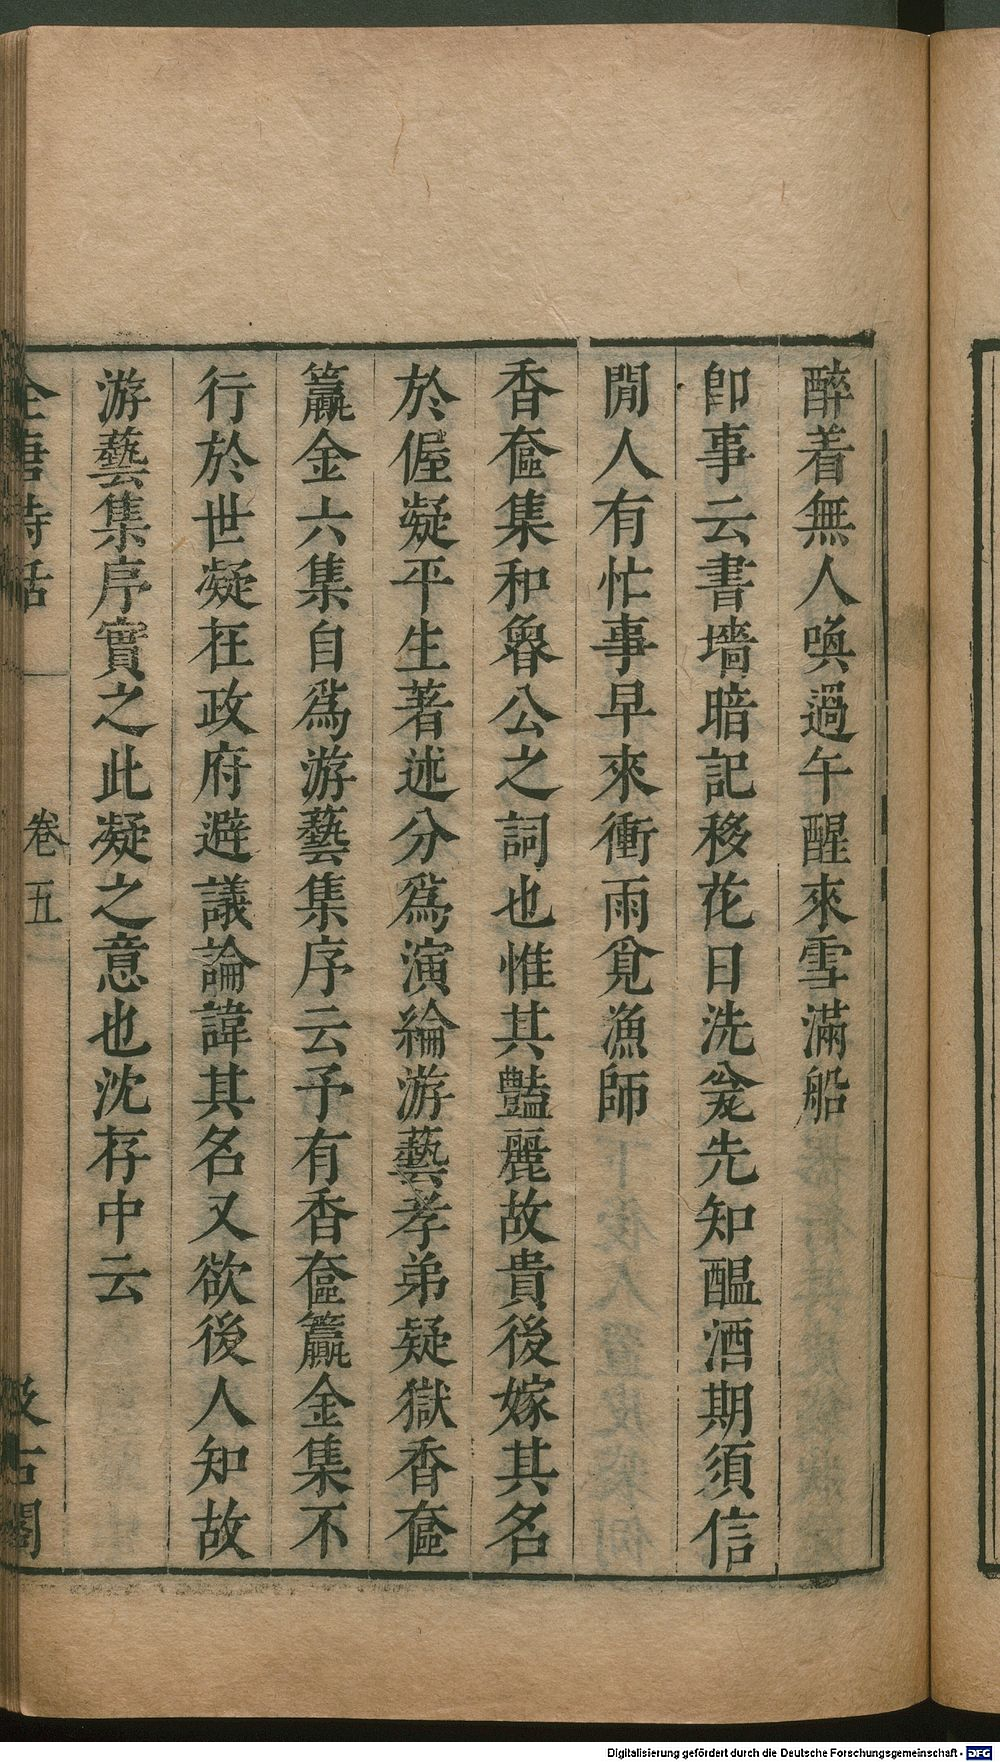 醉着無人喚過午醒來雪滿船
卽事云書墻暗記移花日洗瓮先知醞酒期須信
閒人有忙事早來衝雨覓漁師
香奩集和魯公之詞也惟其豔麗故貴後嫁其名
於偓凝平生著述分爲演綸游藝孝弟疑獄香奩
籯金六集自爲游藝集序云予有香奩籯金集不
行於世凝在政府避議論諱其名又欲後人知故
游藝集序實之此凝之意也沈存中云
全唐詩話
卷五
汲古閣
Digitalisierung gefördert durch die Deutsche Forschungsgemeinschaft - DFG